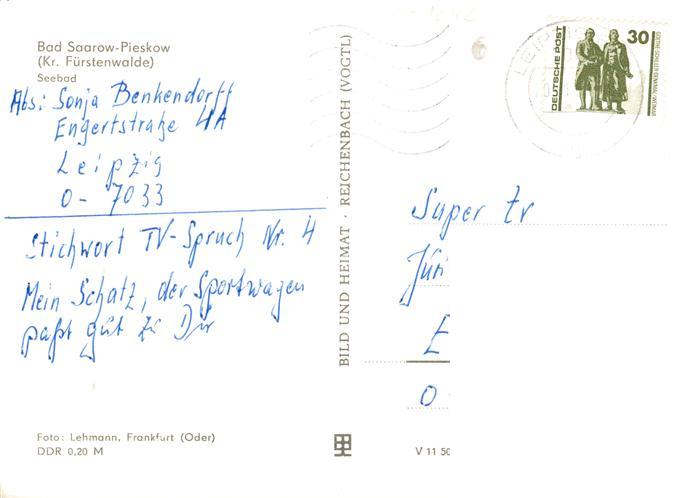 Bad Saarow-Pieskow
(Kr. Fürstenwalde)
Seebad
Abs: Sonja Benkendorff
Engertstraße 4A
Leipzig
O- 7033
Stichwort TV-Spruch Nr. 4
Mein Schatz, der Sportwagen
paßt gut zu Dir
Foto: Lehmann, Frankfurt (Oder)
DDR 0,20 M
BILD UND HEIMAT · REICHENBACH (VOGTL)
DEUTSCHE POST
30
GOETHE-SCHILLER-DENKMAL · WEIMAR
LEIP
Super tr
E
O
V 11 50